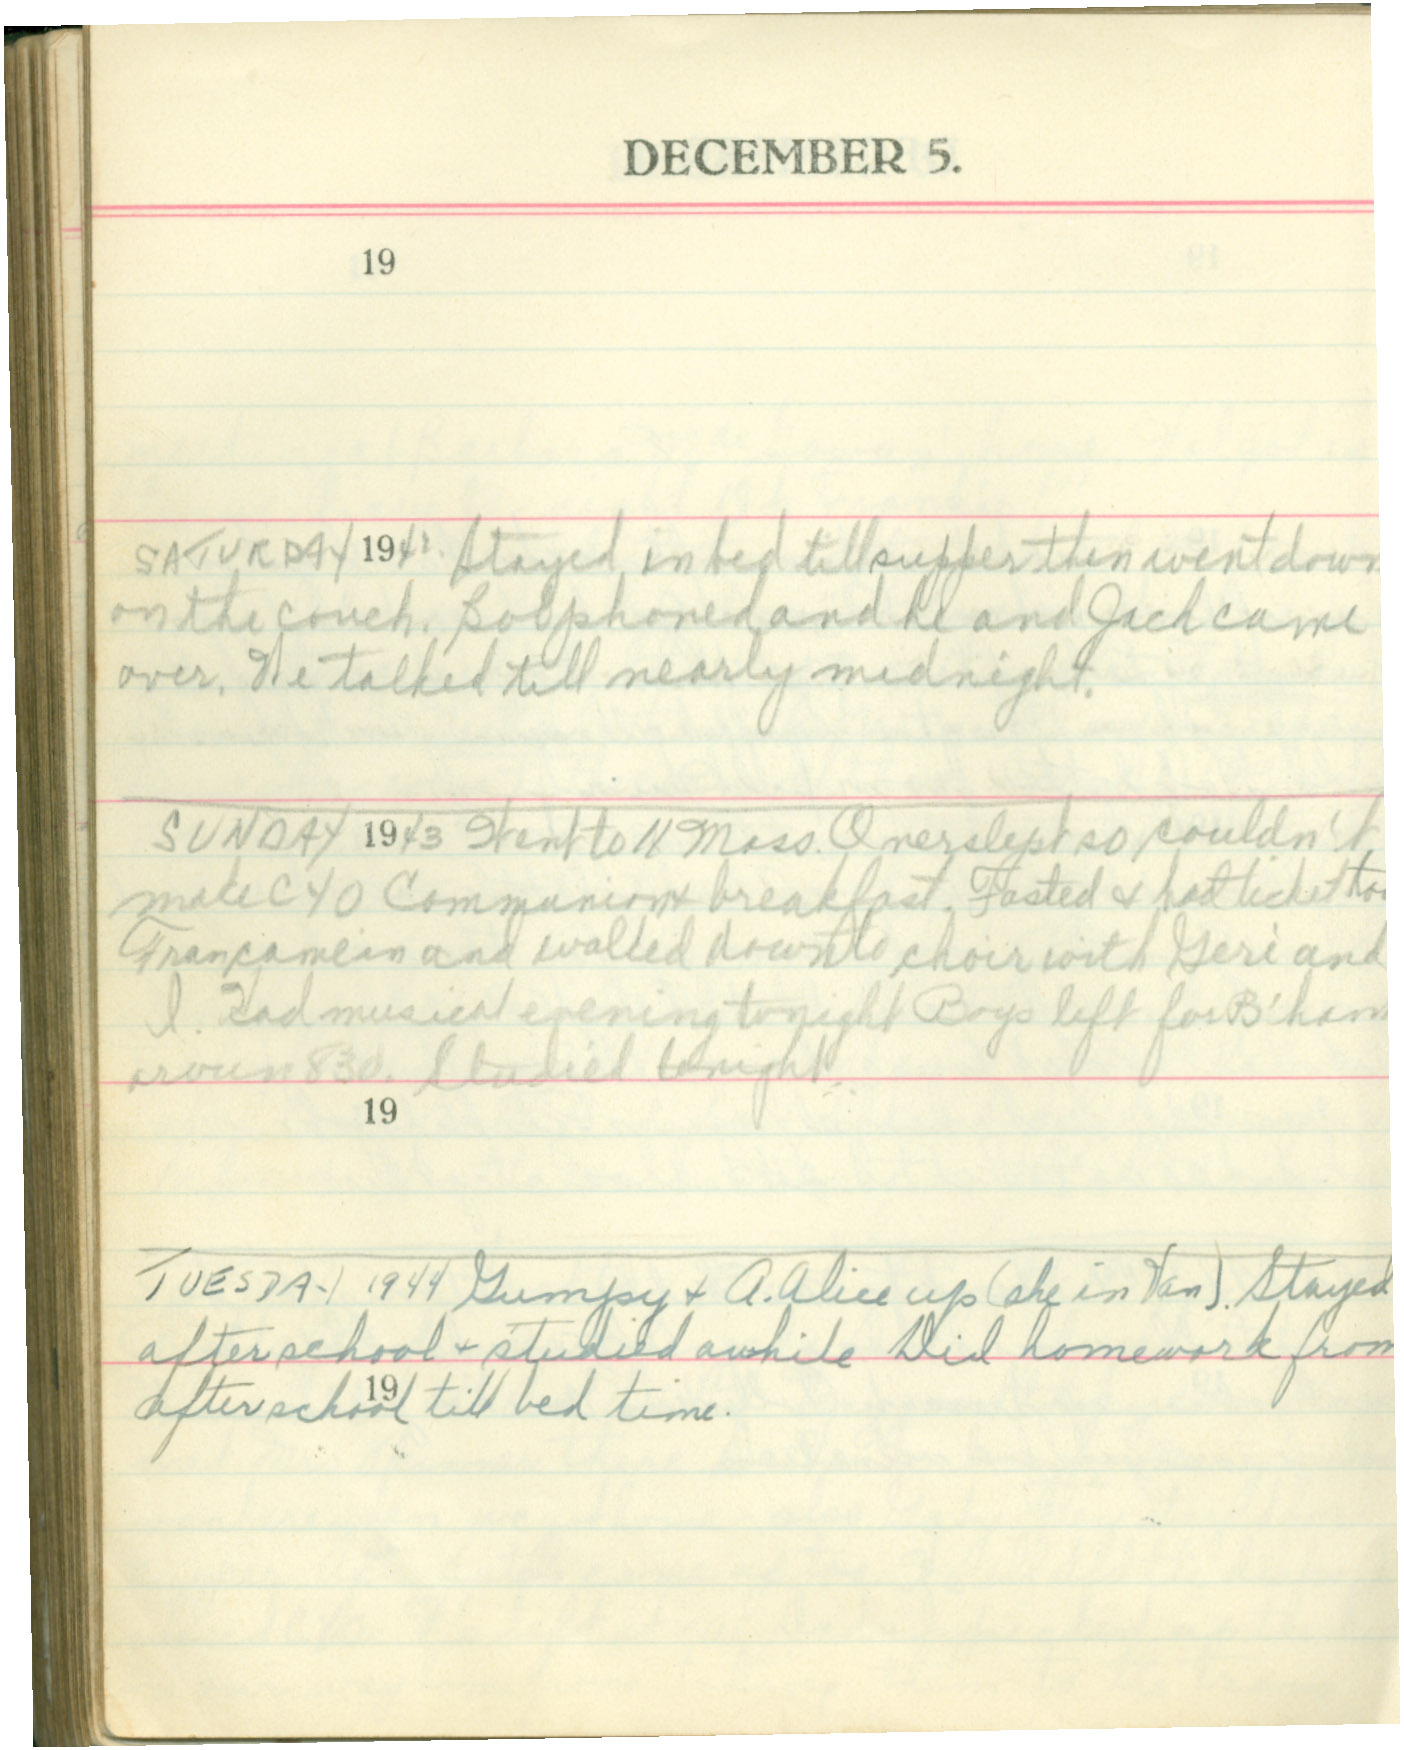 DECEMBER 5.
19
SATURDAY 1942. Stayed in bed till supper then went down
on the couch. Bob phoned and he and Jack came
over. We talked till nearly midnight.
SUNDAY 1943 Went to 11 Mass. Overslept so couldn't
make CYO Communion & breakfast. Fasted & had ticket too
Fran came in and walked down to choir with Geri and
I. Had musical evening tonight Boys left for B'ham
aroun 830. Studied tonight.
19
TUESDAY 1944 Gumpy & A. Alice up (she in Van). Stayed
after school & studied awhile Did homework from
19
after school till bed time.